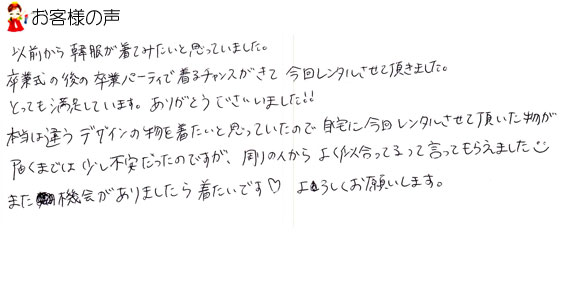 お客様の声
以前から韓服が着てみたいと思っていました。
卒業式の後の卒業パーティで着るチャンスができて今回レンタルさせて頂きました。
とっても満足しています。ありがとうございました!!
本当は違うデザインの物を着たいと思っていたので自宅に今回レンタルさせて頂いた物が
届くまでは少し不安だったのですが、周りの人からよく似合ってるって言ってもらえました
また機会がありましたら着たいです♡ よろしくお願いします。